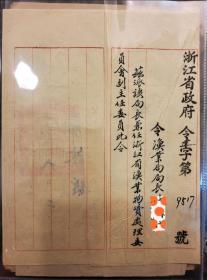 浙江省政府 令 字第9517號
令漁業局局長
茲派該局長兼任浙江省漁業物資處理委
員會副主任委員此令